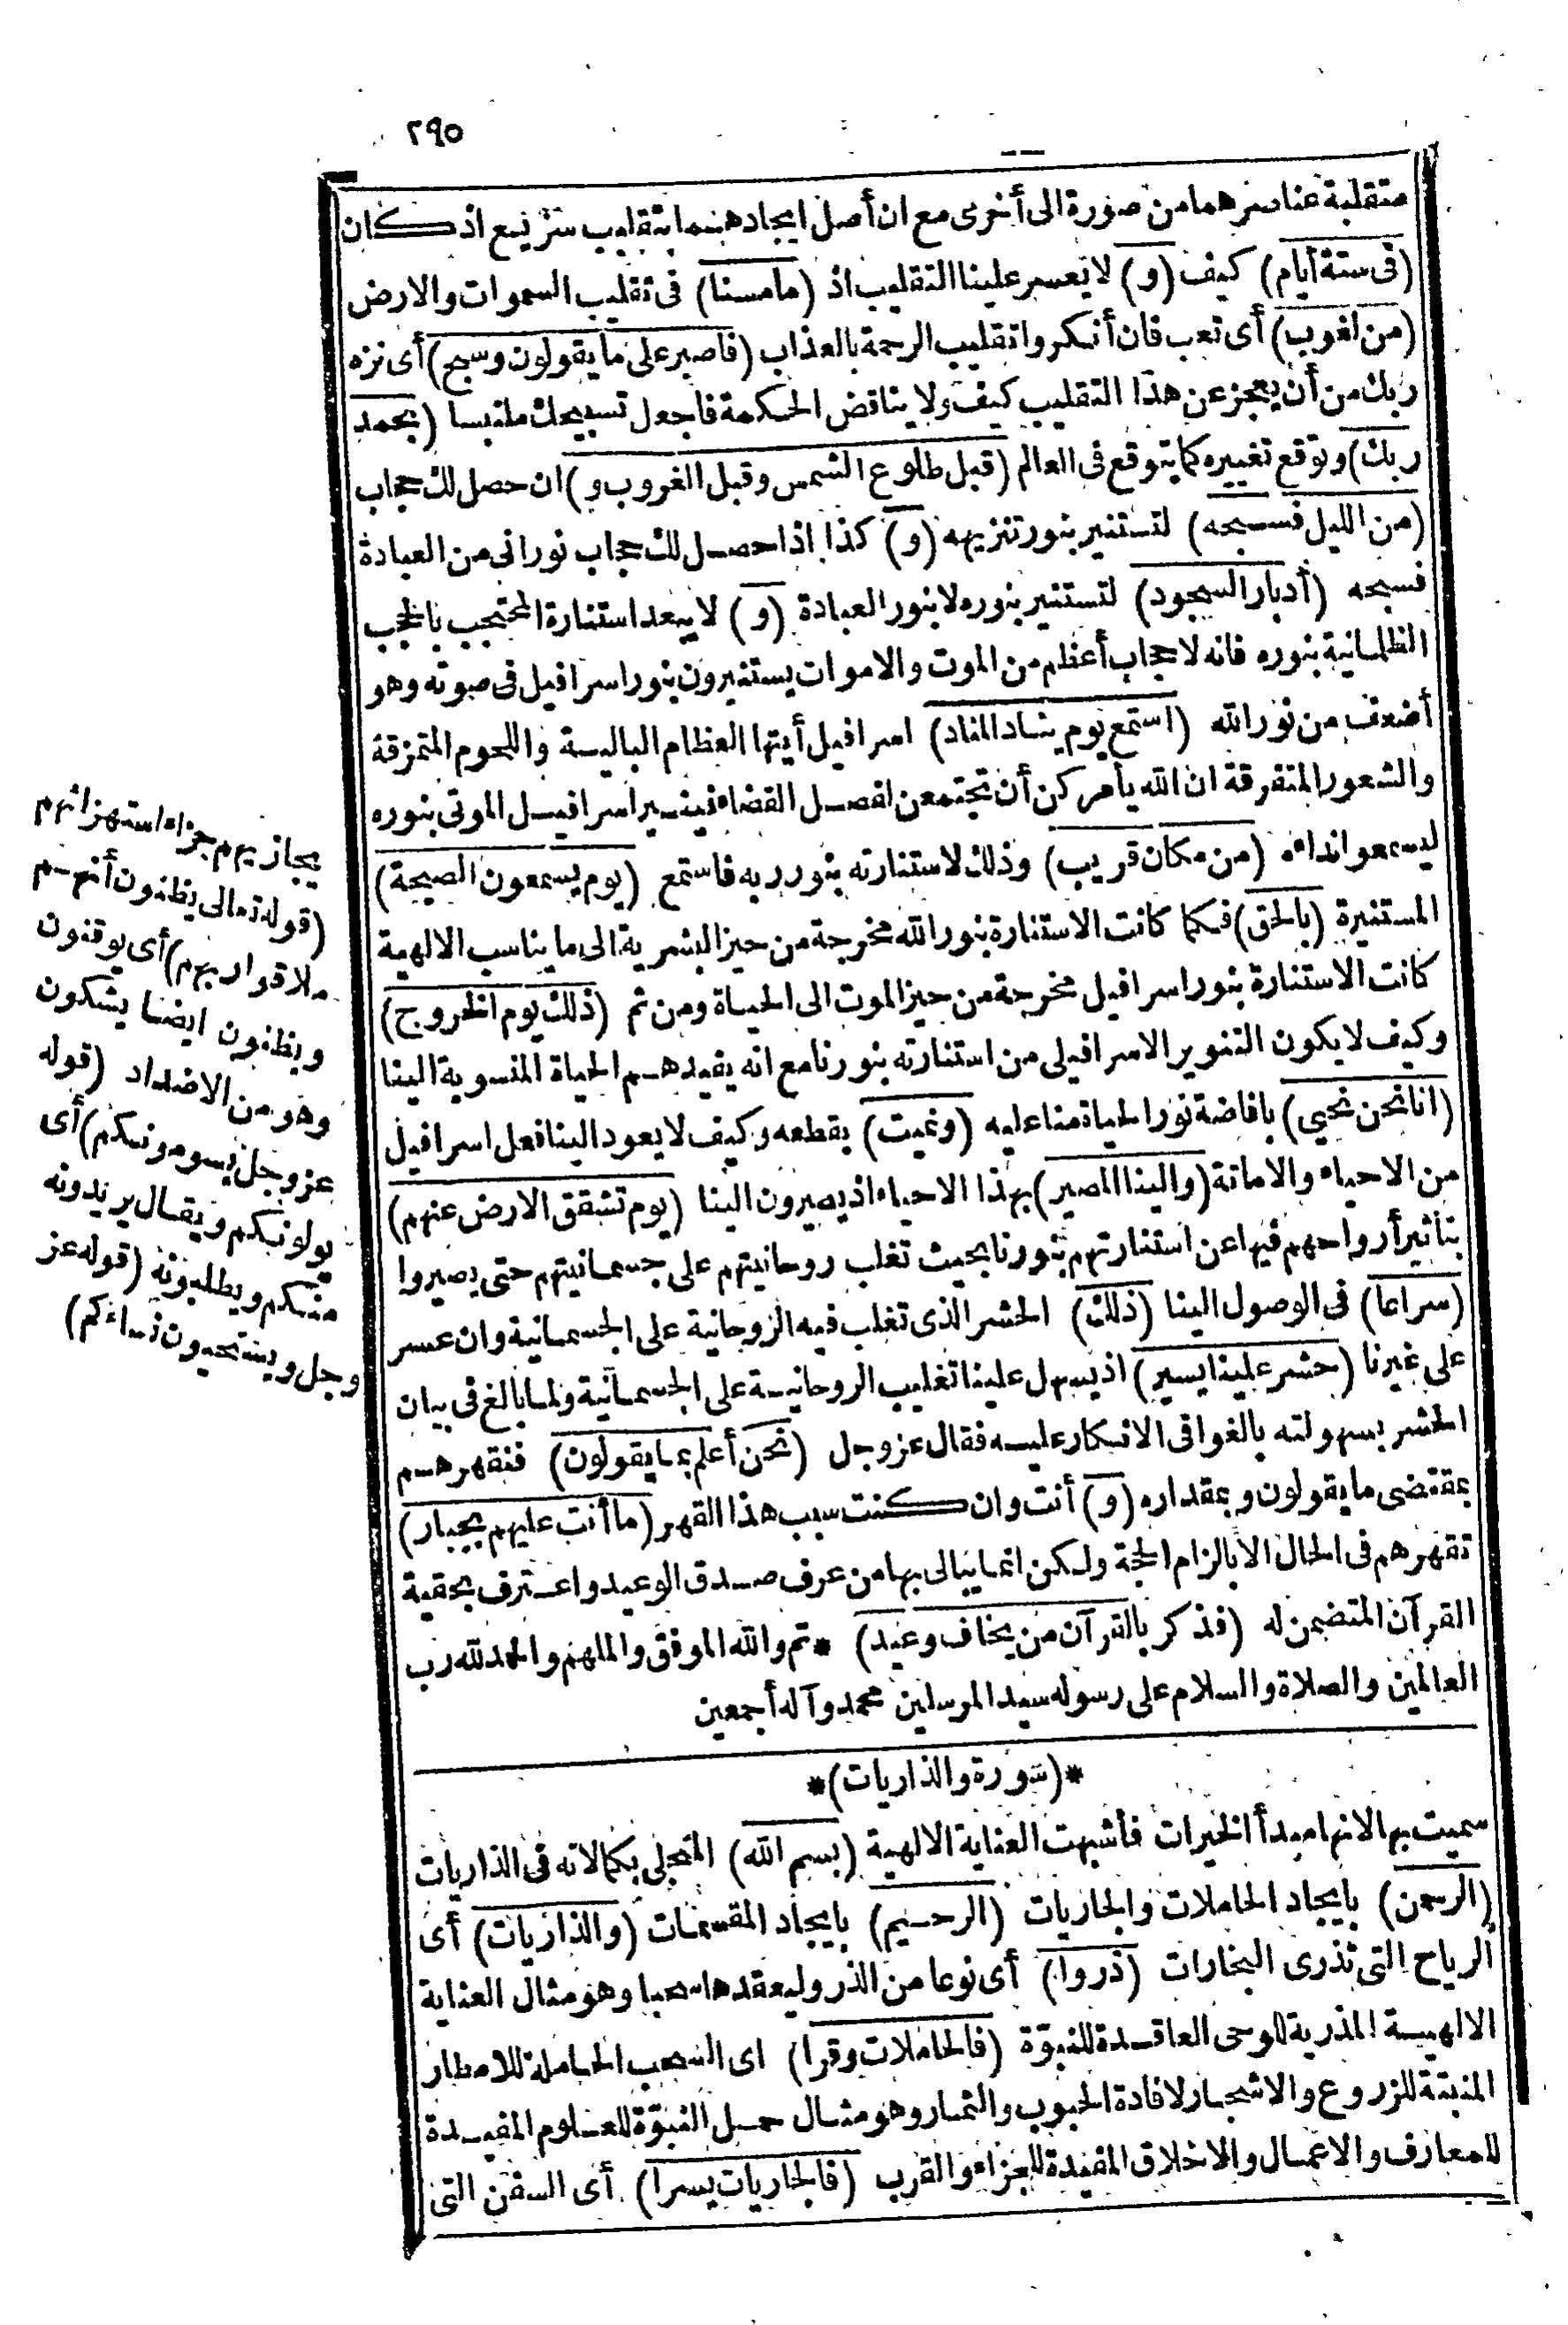 ٢٩٥
متقلبة عناصرهما من صورة الى أخرى مع ان أصل ايجادهما بتقليب سريع اذ كان
(فى ستة أيام) كيف (و) لا يعسر علينا التقليب اذ (مامسنا) فى تقليب السموات والارض
(من لغوب) أى تعب فان أنكروا تقليب الرحمة بالعذاب (فاصبر على ما يقولون وسبح) أى نزه
ربك من أن يعجز عن هذا التقليب كيف ولا يناقض الحكمة فاجعل تسبيحك ملتبسا (بحمد
ربك) وتوقع تغييره كما يتوقع فى العالم (قبل طلوع الشمس وقبل الغروب و) ان حصل لك حجاب
(من الليل فسبحه) لتستنير بنور تنزيهه (و) كذا اذا حصل لك حجاب نورانى من العبادة
فسبحه (أدبار السجود) لتستنير بنوره لا بنور العبادة (و) لا يبعد استنارة المحتجب بالحجب
الظلمانية بنوره فانه لا حجاب أعظم من الموت والاموات يستنيرون بنور اسرافيل فى صوته وهو
أضعف من نور الله (استمع يوم يناد المناد) اسرافيل أيتها العظام البالية واللحوم المتمزقة
والشعور المتفرقة ان الله يأمركن أن تجتمعن لفصل القضاء فينير اسرافيل الموتى بنوره
ليسمعوا نداءه (من مكان قريب) وذلك لاستنارته بنور ربه فاستمع (يوم يسمعون الصيحة)
المستنيرة (بالحق) فكما كانت الاستنارة بنور الله مخرجة من حيز البشرية الى ما يناسب الالهية
كانت الاستنارة بنور اسرافيل مخرجة من حيز الموت الى الحياة ومن ثم (ذلك يوم الخروج)
وكيف لا يكون التنوير الاسرافيلى من استنارته بنورنا مع انه يفيدهم الحياة المنسوبة الينا
(انا نحن نحيي) بافاضة نور الحياة منا عليه (ونميت) بقطعه وكيف لا يعود الينا فعل اسرافيل
من الاحياء والاماتة (والينا المصير) بهذا الاحياء اذ يصيرون الينا (يوم تشقق الارض عنهم)
بتأثير أرواحهم فيها عن استنارتهم بنورنا بحيث تغلب روحانيتهم على جسمانيتهم حتى يصيروا
(سراعا) فى الوصول الينا (ذلك) الحشر الذى تغلب فيه الروحانية على الجسمانية وان عسر
على غيرنا (حشر علينا يسير) اذ يسهل علينا تغليب الروحانية على الجسمانية ولما بالغ فى بيان
الحشر بسهولته بالغوا فى الانكار عليه فقال عز وجل (نحن أعلم بما يقولون) فنقهرهم
بمقتضى ما يقولون وبمقداره (و) أنت وان كنت سبب هذا القهر (ما أنت عليهم بجبار)
تقهرهم فى الحال الا بالزام الحجة ولكن انما يبالى بها من عرف صدق الوعيد واعترف بحقية
القرآن المتضمن له (فذكر بالقرآن من يخاف وعيد) * تم والله الموفق والملهم والحمد لله رب
العالمين والصلاة والسلام على رسوله سيد المرسلين محمد وآله أجمعين
*(سورة والذاريات)*
سميت بها لانها مبدأ الخيرات فأشبهت العناية الالهية (بسم الله) المتجلى بكمالاته فى الذاريات
(الرحمن) بايجاد الحاملات والجاريات (الرحيم) بايجاد المقسمات (والذاريات) أى
الرياح التى تذرى البخارات (ذروا) أى نوعا من الذر وليعقدها سحبا وهو مثال العناية
الالهية المذرية للوحى العاقدة للنبوة (فالحاملات وقرا) اى السحب الحاملة للامطار
المنبتة للزروع والاشجار لافادة الحبوب والثمار وهو مثال حمل النبوة للعلوم المفيدة
للمعارف والاعمال والاخلاق المفيدة للجزاء والقرب (فالجاريات يسرا) أى السفن التى
يجازيهم جزاء استهزائهم
(قوله تعالى يظنون أنهم
ملاقوا ربهم) أى يوقنون
ويظنون ايضا يشكون
وهو من الاضداد (قوله
عز وجل يسومونكم) أى
يولونكم ويقال يريدونه
منكم ويطلبونه (قوله عز
وجل ويستحيون نساءكم)